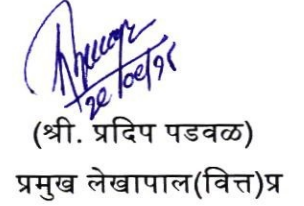 (श्री. प्रदिप पडवळ)
प्रमुख लेखापाल(वित्त)प्र